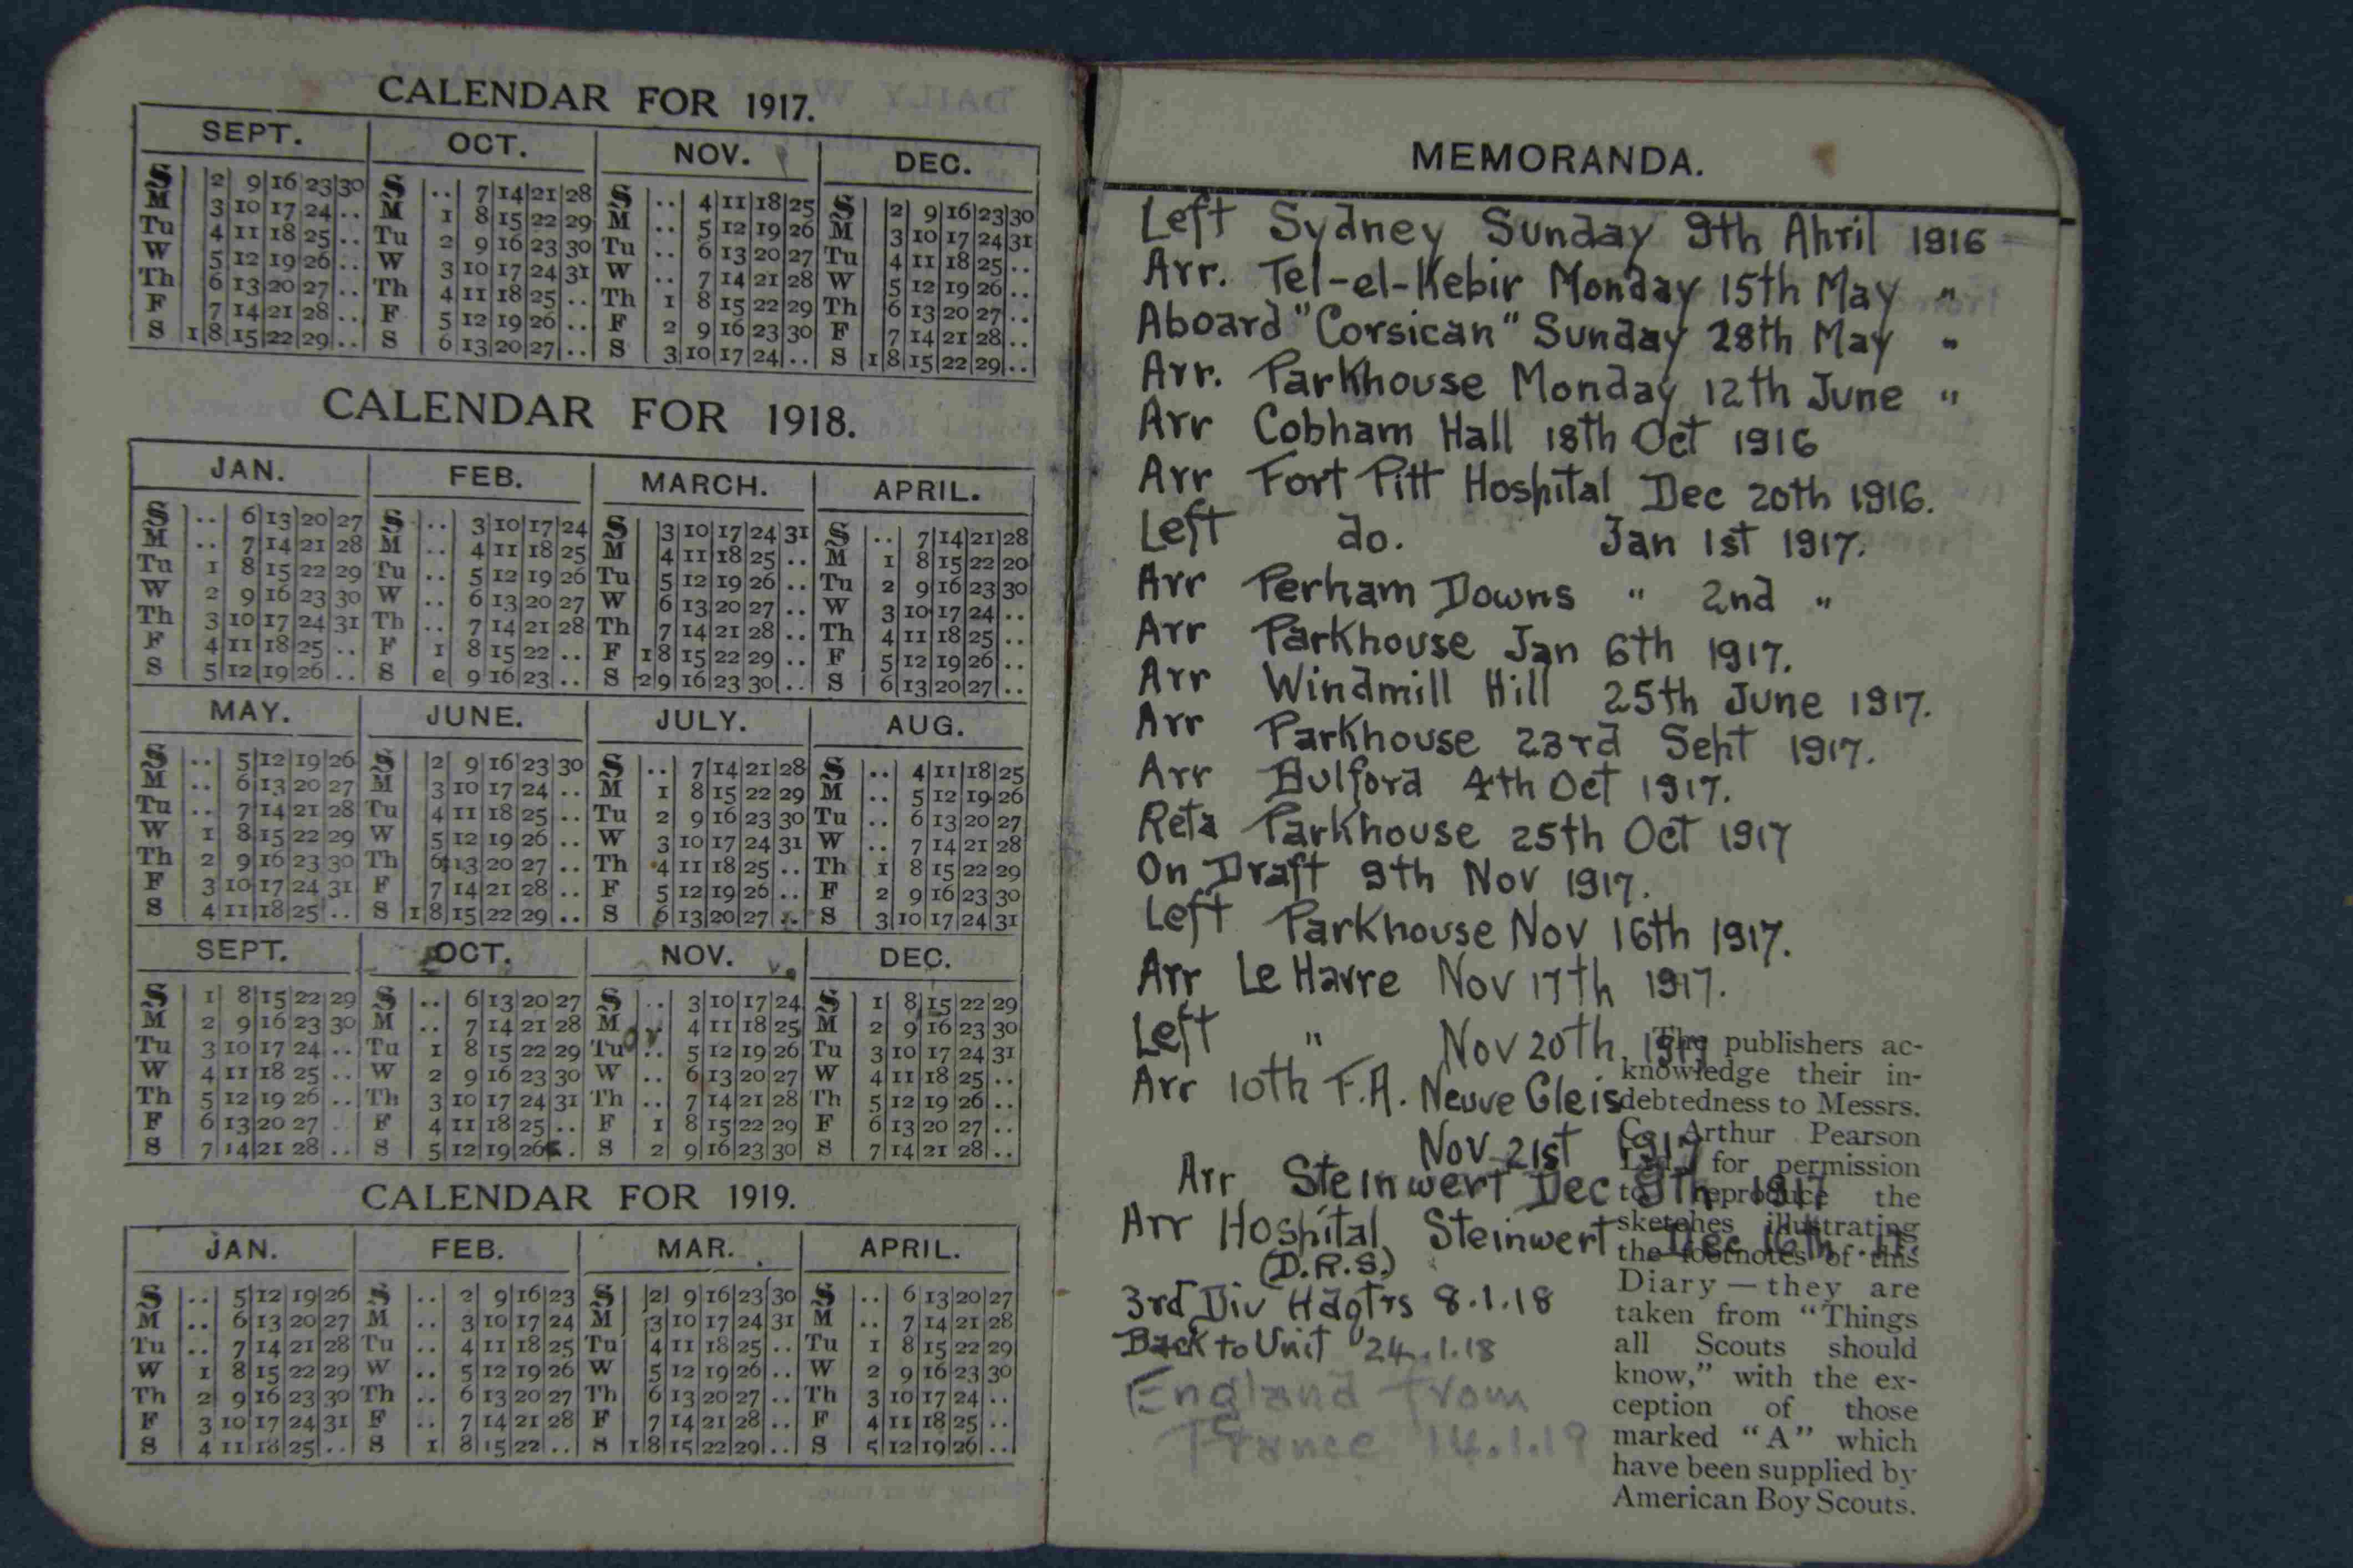 CALENDAR FOR 1917.
SEPT. OCT. NOV. DEC.
S 2 9 16 23 30 S .. 7 14 21 28 S .. 4 11 18 25 S 2 9 16 23 30
M 3 10 17 24 .. M 1 8 15 22 29 M .. 5 12 19 26 M 3 10 17 24 31
Tu 4 11 18 25 .. Tu 2 9 16 23 30 Tu .. 6 13 20 27 Tu 4 11 18 25 ..
W 5 12 19 26 .. W 3 10 17 24 31 W .. 7 14 21 28 W 5 12 19 26 ..
Th 6 13 20 27 .. Th 4 11 18 25 .. Th 1 8 15 22 29 Th 6 13 20 27 ..
F 7 14 21 28 .. F 5 12 19 26 .. F 2 9 16 23 30 F 7 14 21 28 ..
S 1 8 15 22 29 .. S 6 13 20 27 .. S 3 10 17 24 .. S 1 8 15 22 29 ..
CALENDAR FOR 1918.
JAN. FEB. MARCH. APRIL.
S .. 6 13 20 27 S .. 3 10 17 24 S 3 10 17 24 31 S .. 7 14 21 28
M .. 7 14 21 28 M .. 4 11 18 25 M 4 11 18 25 .. M 1 8 15 22 20
Tu 1 8 15 22 29 Tu .. 5 12 19 26 Tu 5 12 19 26 .. Tu 2 9 16 23 30
W 2 9 16 23 30 W .. 6 13 20 27 W 6 13 20 27 .. W 3 10 17 24 ..
Th 3 10 17 24 31 Th .. 7 14 21 28 Th 7 14 21 28 .. Th 4 11 18 25 ..
F 4 11 18 25 .. F 1 8 15 22 .. F 1 8 15 22 29 .. F 5 12 19 26 ..
S 5 12 19 26 .. S e 9 16 23 .. S 2 9 16 23 30 .. S 6 13 20 27 ..
MAY. JUNE. JULY. AUG.
S .. 5 12 19 26 S 2 9 16 23 30 S .. 7 14 21 28 S .. 4 11 18 25
M .. 6 13 20 27 M 3 10 17 24 .. M 1 8 15 22 29 M .. 5 12 19 26
Tu .. 7 14 21 28 Tu 4 11 18 25 .. Tu 2 9 16 23 30 Tu .. 6 13 20 27
W 1 8 15 22 29 W 5 12 19 26 .. W 3 10 17 24 31 W .. 7 14 21 28
Th 2 9 16 23 30 Th 6 13 20 27 .. Th 4 11 18 25 .. Th 1 8 15 22 29
F 3 10 17 24 31 F 7 14 21 28 .. F 5 12 19 26 .. F 2 9 16 23 30
S 4 11 18 25 .. S 1 8 15 22 29 .. S 6 13 20 27 .. S 3 10 17 24 31
SEPT. OCT. NOV. DEC.
S 1 8 15 22 29 S .. 6 13 20 27 S .. 3 10 17 24 S 1 8 15 22 29
M 2 9 16 23 30 M .. 7 14 21 28 M .. 4 11 18 25 M 2 9 16 23 30
Tu 3 10 17 24 .. Tu 1 8 15 22 29 Tu .. 5 12 19 26 Tu 3 10 17 24 31
W 4 11 18 25 .. W 2 9 16 23 30 W .. 6 13 20 27 W 4 11 18 25 ..
Th 5 12 19 26 .. Th 3 10 17 24 31 Th .. 7 14 21 28 Th 5 12 19 26 ..
F 6 13 20 27 . F 4 11 18 25 .. F 1 8 15 22 29 F 6 13 20 27 ..
S 7 14 21 28 .. S 5 12 19 26 . S 2 9 16 23 30 S 7 14 21 28 ..
CALENDAR FOR 1919.
JAN. FEB. MAR. APRIL.
S .. 5 12 19 26 S .. 2 9 16 23 S 2 9 16 23 30 S .. 6 13 20 27
M .. 6 13 20 27 M .. 3 10 17 24 M 3 10 17 24 31 M .. 7 14 21 28
Tu .. 7 14 21 28 Tu .. 4 11 18 25 Tu 4 11 18 25 .. Tu 1 8 15 22 29
W 1 8 15 22 29 W .. 5 12 19 26 W 5 12 19 26 .. W 2 9 16 23 30
Th 2 9 16 23 30 Th .. 6 13 20 27 Th 6 13 20 27 .. Th 3 10 17 24 ..
F 3 10 17 24 31 F .. 7 14 21 28 F 7 14 21 28 .. F 4 11 18 25 ..
S 4 11 18 25 .. S 1 8 15 22 .. S 1 8 15 22 29 .. S 5 12 19 26 ..
MEMORANDA.
Left Sydney Sunday 9th April 1916
Arr. Tel-el-Kebir Monday 15th May "
Aboard "Corsican" Sunday 28th May "
Arr. Parkhouse Monday 12th June "
Arr Cobham Hall 18th Oct 1916
Arr Fort Pitt Hospital Dec 20th 1916.
Left do. Jan 1st 1917.
Arr Perham Downs " 2nd "
Arr Parkhouse Jan 6th 1917.
Arr Windmill Hill 25th June 1917.
Arr Parkhouse 23rd Sept 1917.
Arr Bulford 4th Oct 1917.
Retd Parkhouse 25th Oct 1917
On Draft 9th Nov 1917.
Left Parkhouse Nov 16th 1917.
Arr Le Havre Nov 17th 1917.
Left " Nov 20th 1917
Arr 10th F.A. Neuve Gleis
Nov 21st 1917
Arr Steinwert Dec 9th 1917
Arr Hospital Steinwert Dec 16th . 17.
(D.R.S.)
3rd Div Hdqtrs 8.1.18
Back to Unit 24.1.18
England from
France 14.1.19
The publishers ac-
knowledge their in-
debtedness to Messrs.
C. Arthur Pearson
Ltd. for permission
to reproduce the
sketches illustrating
the footnotes of this
Diary — they are
taken from "Things
all Scouts should
know," with the ex-
ception of those
marked "A" which
have been supplied by
American Boy Scouts.